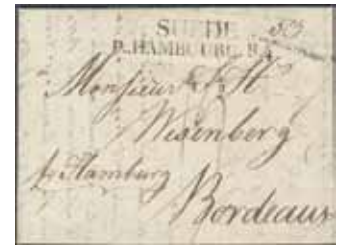 SUEDE
P. HAMBOURG. R. 4
Monsieur
Wisenberg
pr Hamburg
Bordeaux